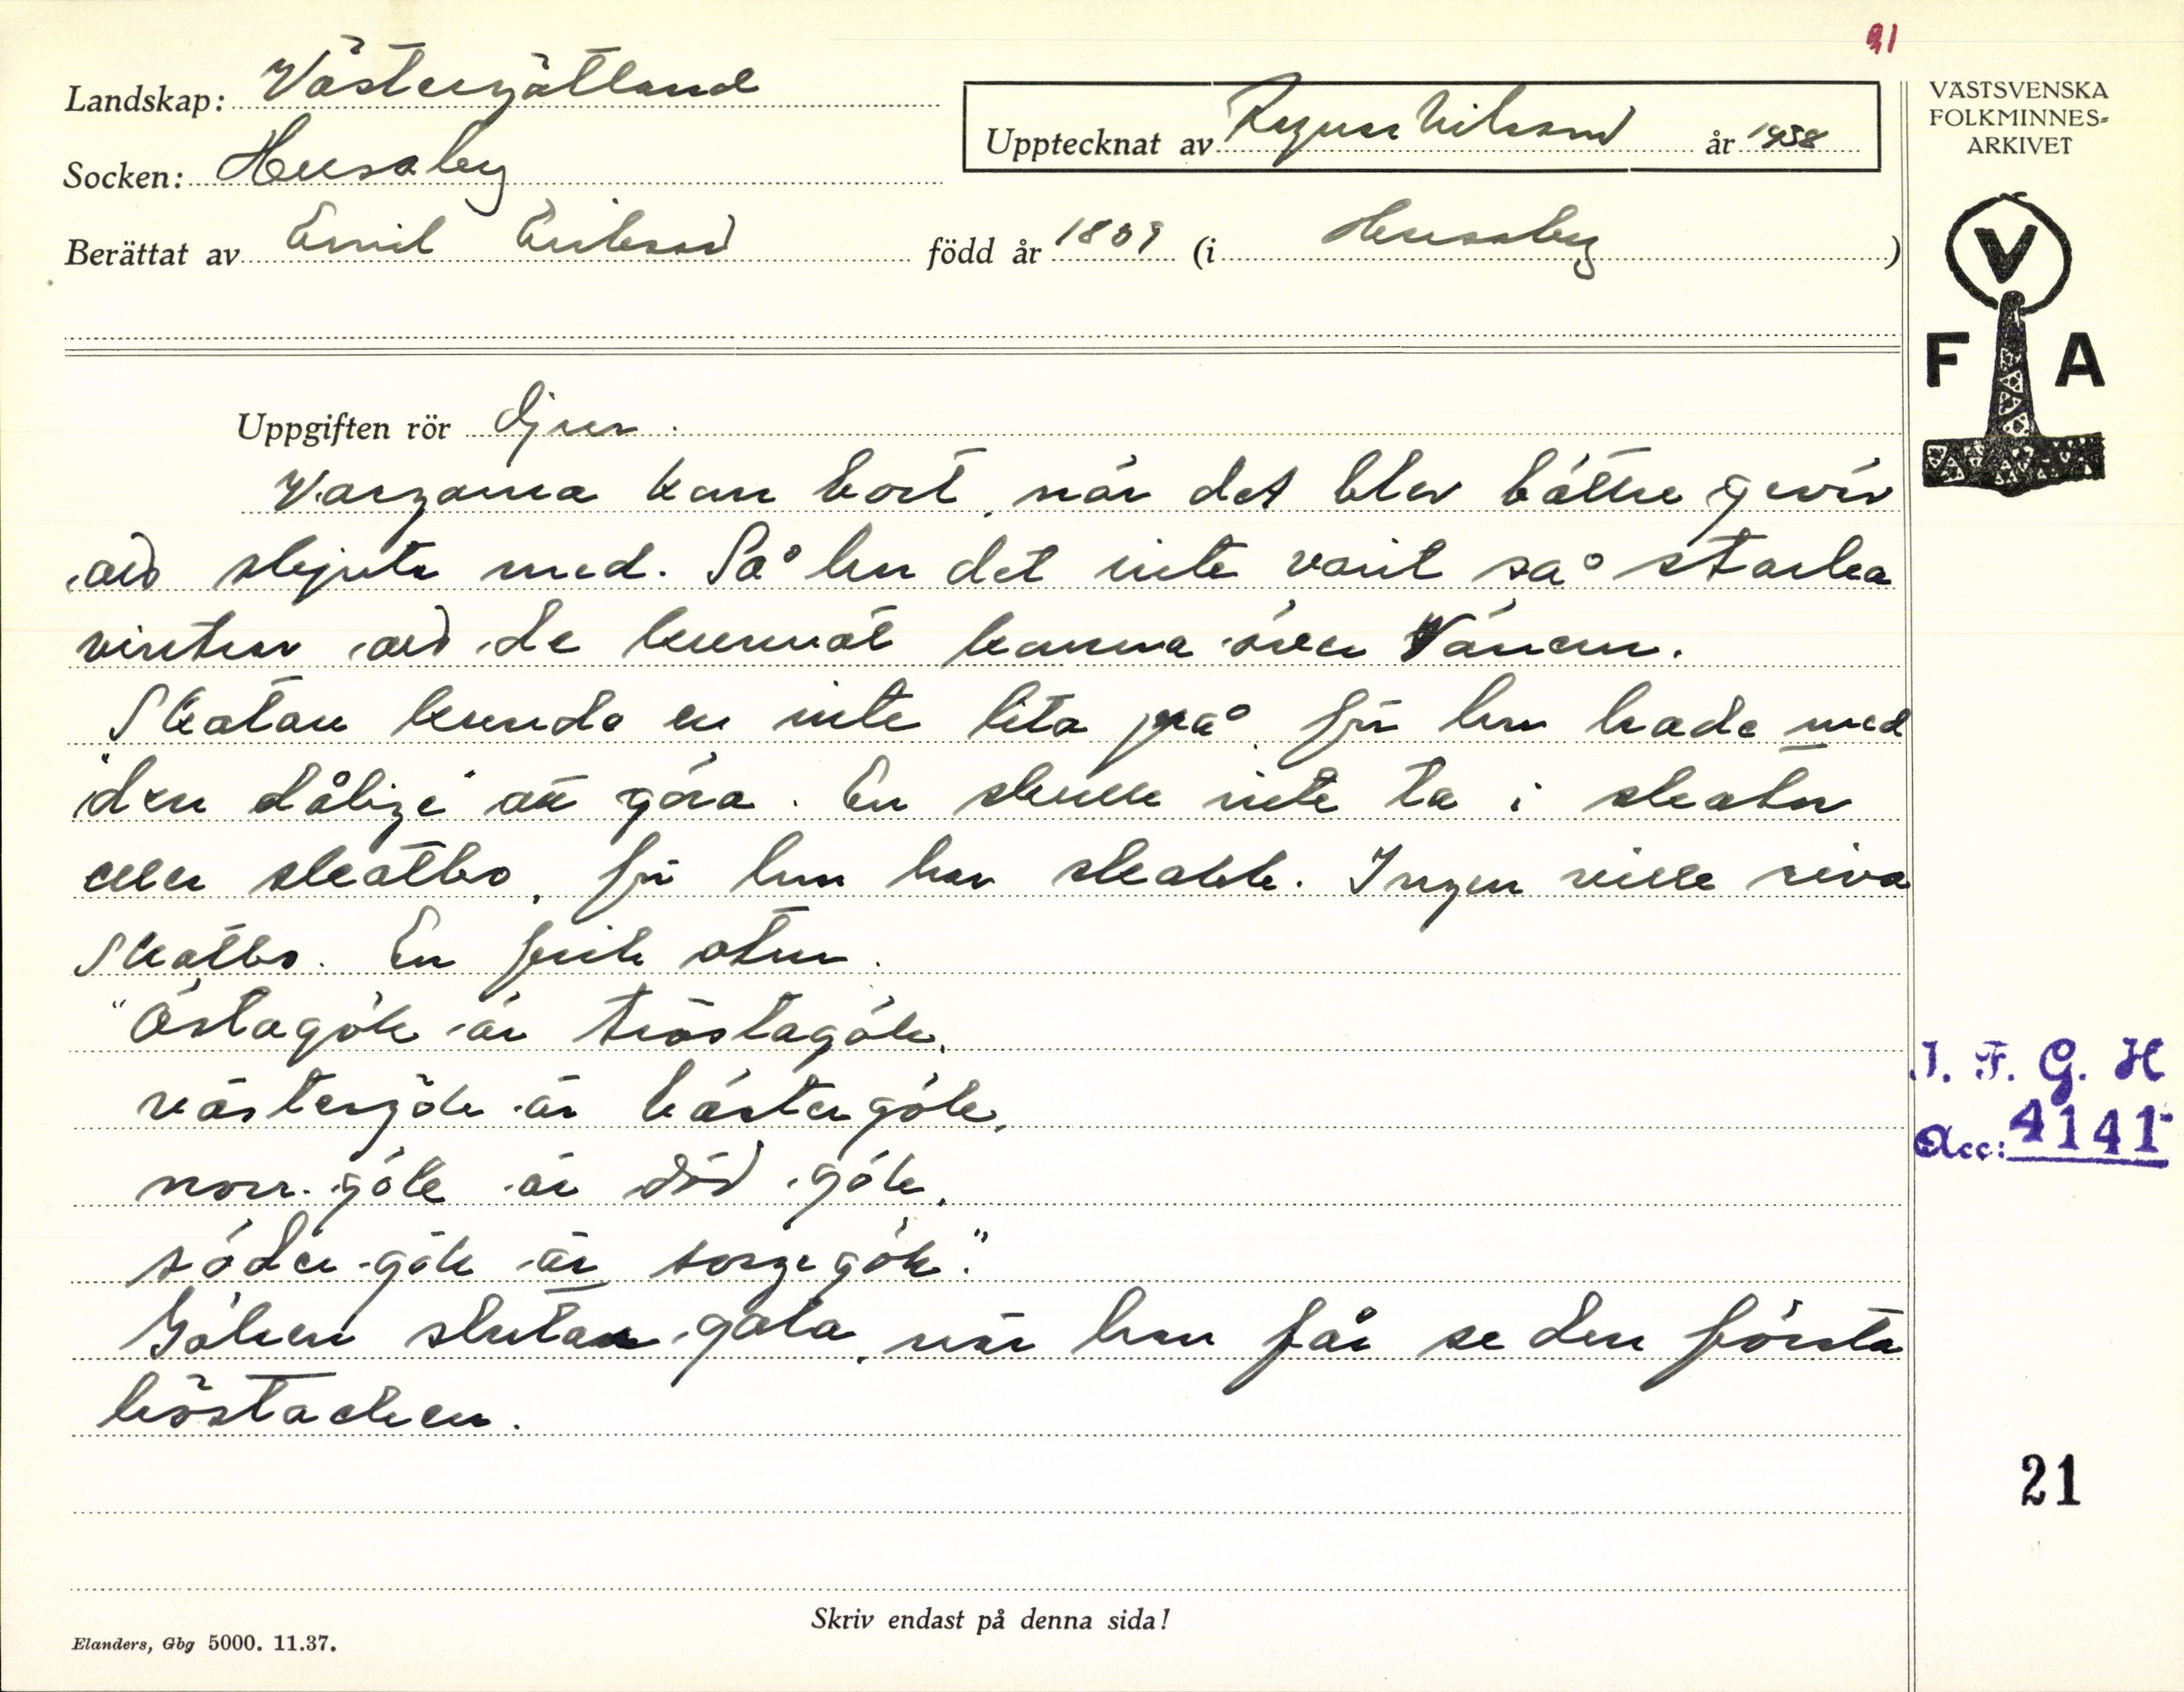 91
Landskap: Västergötland
Upptecknat av Ragnar Nilsson år 1938
VÄSTSVENSKA
FOLKMINNES-
ARKIVET
Socken: Husaby
Berättat av Emil Erikson född år 18 9 (i Husaby )
V
F A
Uppgiften rör djur.
Vargarna kom bort, när det blev bättre gevär
att skjuta med. Så har det inte varit så starka
vintrar att de kunnat komma över Vänern.
Skatan kunde en inte lita på, för hon hade med
"den dålige" att göra. En skulle inte ta i skator
eller skatbo, för hon har skabb. Ingen ville riva
skatbo. En fick otur.
"Östagök är tröstagök,
västergök är bästergök,
norr-gök är död-gök,
söder-gök är sorgegök."
Göken slutar gala, när han får se den första
höstacken.
I. F. G. H
Acc: 4141
21
Skriv endast på denna sida!
Elanders, Gbg 5000. 11.37.